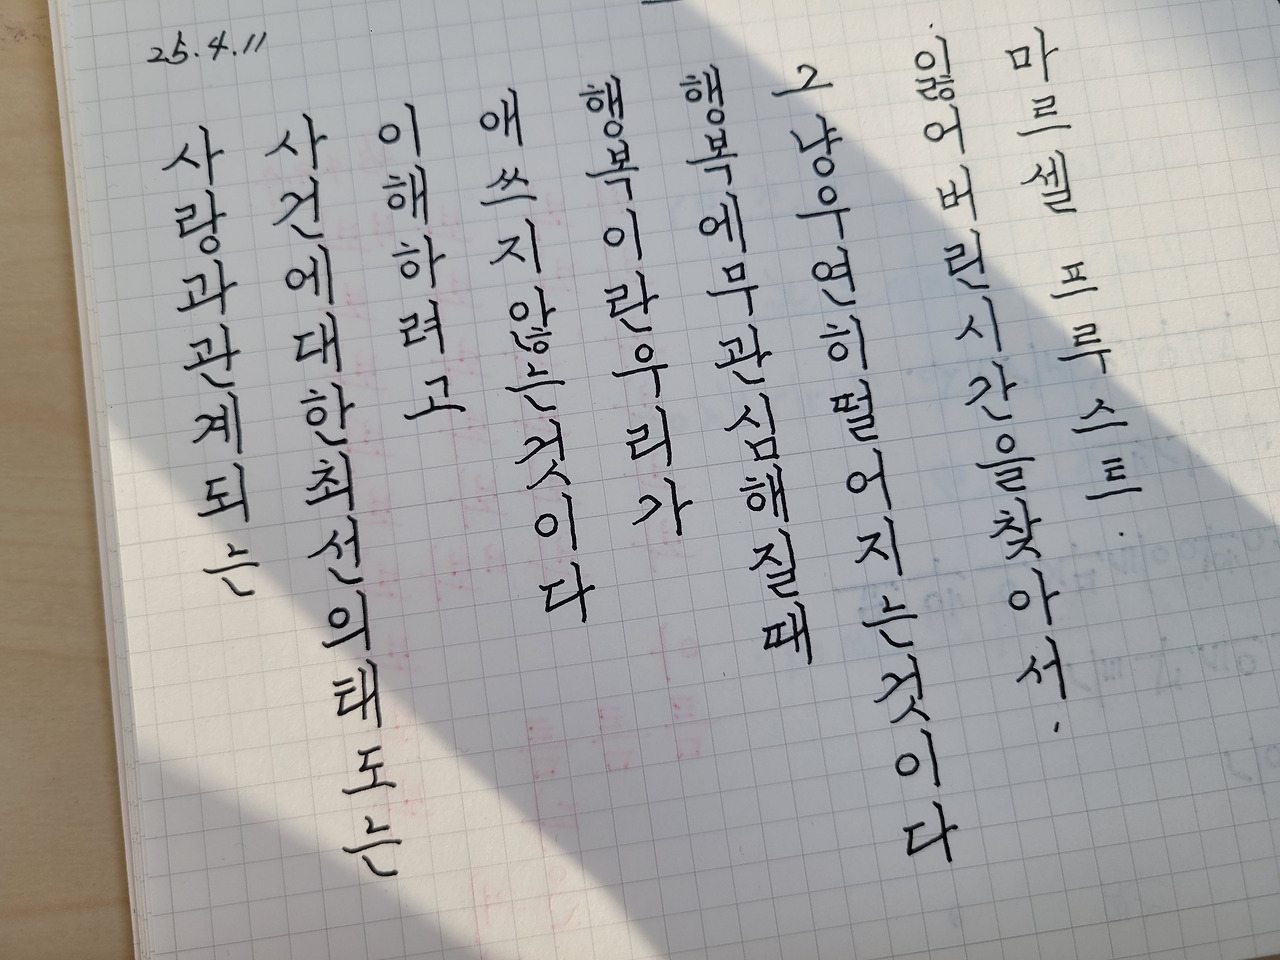 25.4.11
사랑과관계되는
사건에대한최선의태도는
이해하려고
애쓰지않는것이다
행복이란우리가
행복에무관심해질때
그냥우연히떨어지는것이다
잃어버린시간을찾아서.
마르셀 프루스트.